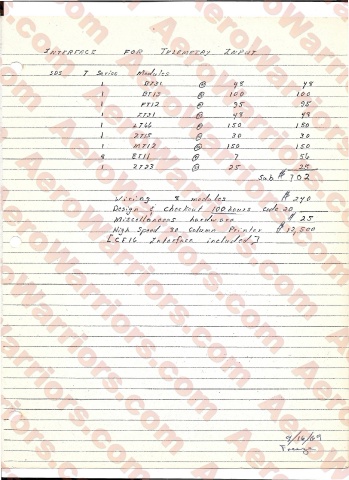 INTERFACE FOR TELEMETRY INPUT
SDS 7 Series Modules
1 BT31 @ 48 48
1 DT13 @ 100 100
1 FT12 @ 95 95
1 @ 48 48
1 LT66 @ 150 150
1 @ 30 30
1 MT12 @ 150 150
8 ET11 @ 7 56
1 ZT23 @ 25 25
Sub $ 702
Wiring 8 modules $ 240
Design & Checkout 100 hours Code 20
Miscellaneous hardware $ 25
High Speed 30 Column Printer $ 12,500
[CF16 Interface included]
9/16/69
AeroWarriors.com